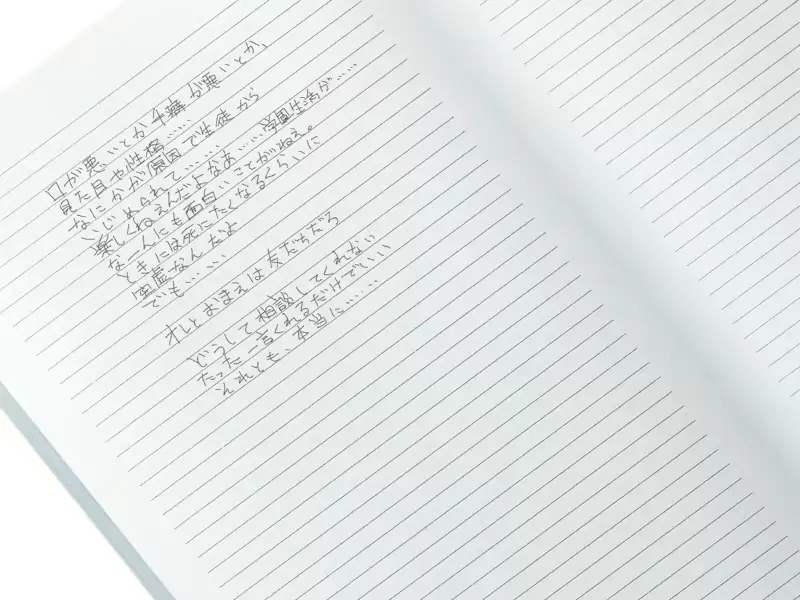 口が悪いとか手癖が悪いとか、
見た目や性格……
なにかが原因で生徒から
いじめられて………
楽しくねえんだよなあ……学園生活が……
なー んにも面白いことがねえ。
ときには死にたくなるくらいに
空虚なんだよ
でも……
オレとおまえは友だちだろ
どうして相談してくれない
たった一言くれるだけでいい
それとも、本当に……